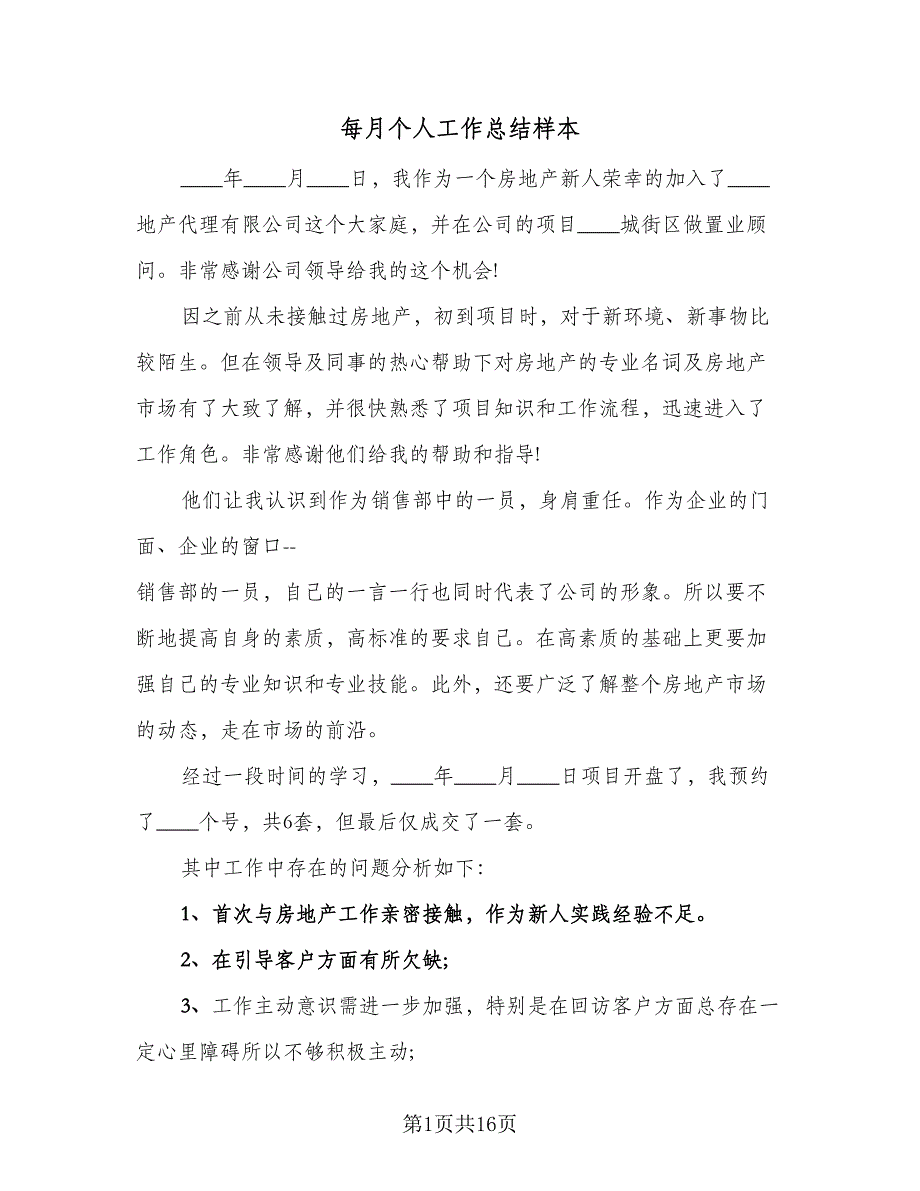 每月个人工作总结样本
____年____月____日，我作为一个房地产新人荣幸的加入了____
地产代理有限公司这个大家庭，并在公司的项目____城街区做置业顾
问。非常感谢公司领导给我的这个机会!
因之前从未接触过房地产，初到项目时，对于新环境、新事物比
较陌生。但在领导及同事的热心帮助下对房地产的专业名词及房地产
市场有了大致了解，并很快熟悉了项目知识和工作流程，迅速进入了
工作角色。非常感谢他们给我的帮助和指导!
他们让我认识到作为销售部中的一员，身肩重任。作为企业的门
面、企业的窗口--
销售部的一员，自己的一言一行也同时代表了公司的形象。所以要不
断地提高自身的素质，高标准的要求自己。在高素质的基础上更要加
强自己的专业知识和专业技能。此外，还要广泛了解整个房地产市场
的动态，走在市场的前沿。
经过一段时间的学习，____年____月____日项目开盘了，我预约
了____个号，共6套，但最后仅成交了一套。
其中工作中存在的问题分析如下：
1、首次与房地产工作亲密接触，作为新人实践经验不足。
2、在引导客户方面有所欠缺;
3、工作主动意识需进一步加强，特别是在回访客户方面总存在一
定心里障碍所以不够积极主动;
第1页共16页